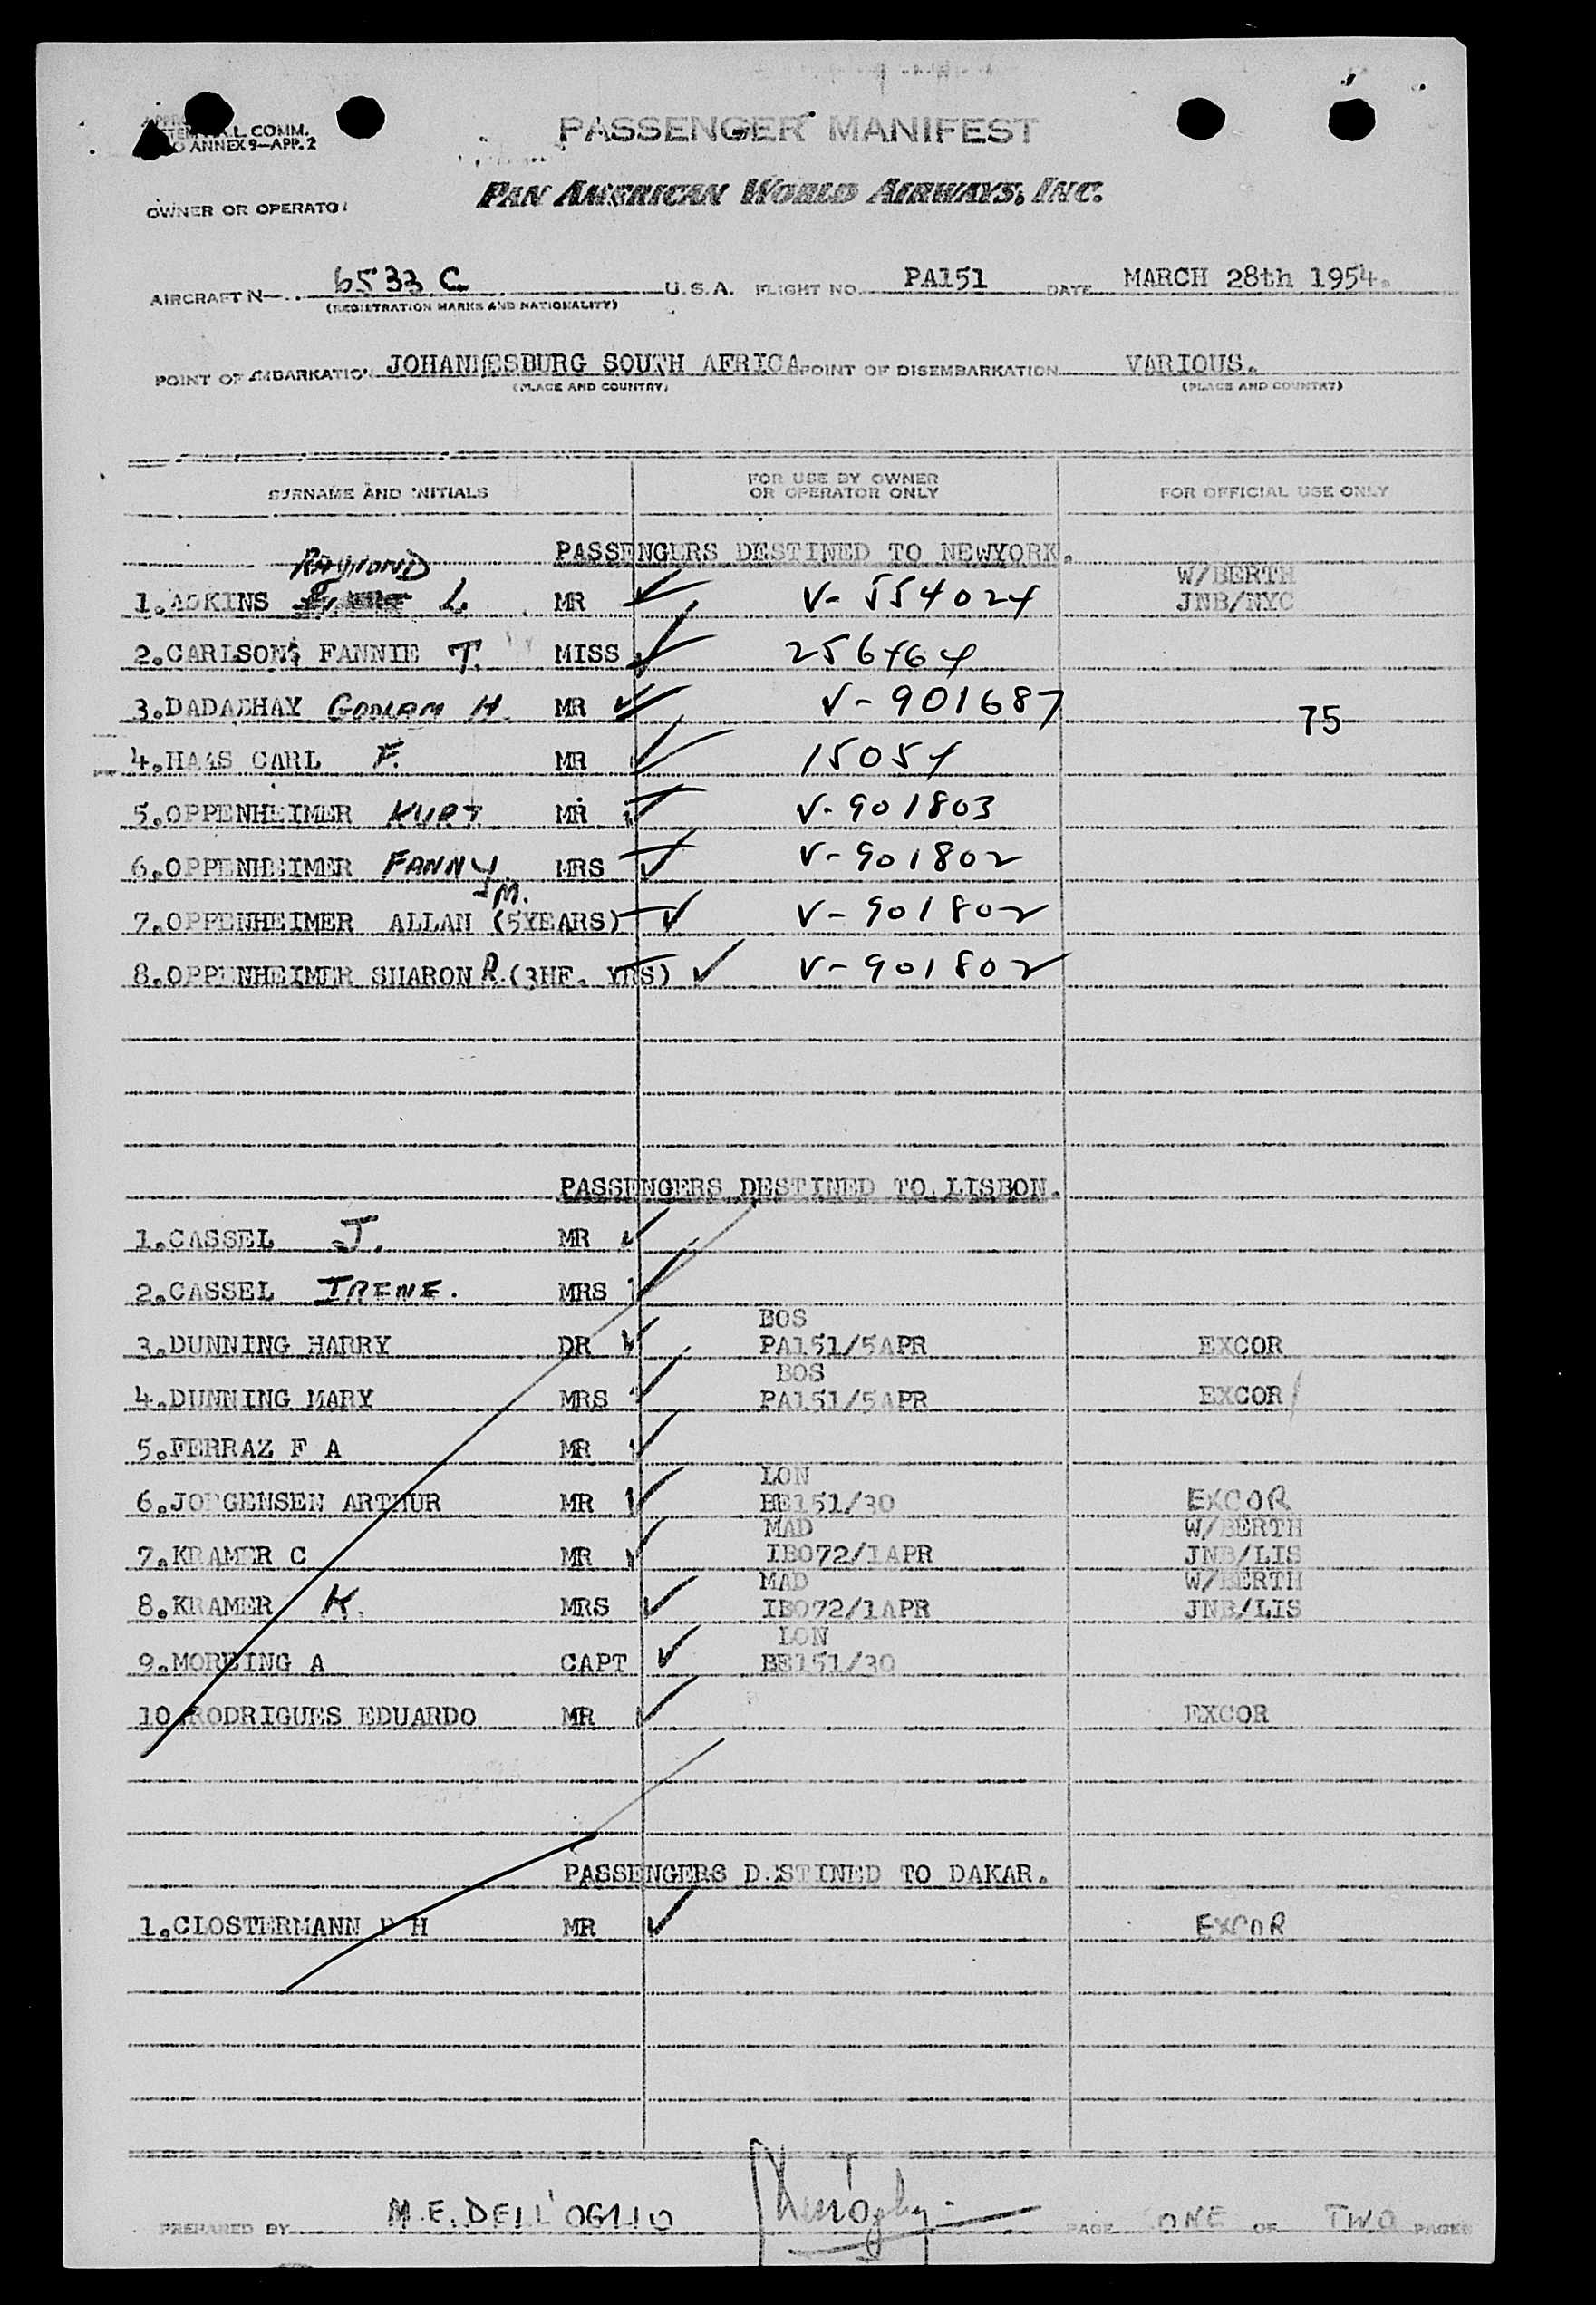 A.L. COMM.
ANNEX 9—APP. 2
PASSENGER MANIFEST
OWNER OR OPERATOR PAN AMERICAN WORLD AIRWAYS, INC.
AIRCRAFT N 6533 C U.S.A. FLIGHT NO. PA151 DATE MARCH 28th 1954.
(REGISTRATION MARKS AND NATIONALITY)
POINT OF EMBARKATION JOHANNESBURG SOUTH AFRICA POINT OF DISEMBARKATION VARIOUS.
(PLACE AND COUNTRY) (PLACE AND COUNTRY)
SURNAME AND INITIALS FOR USE BY OWNER OR OPERATOR ONLY FOR OFFICIAL USE ONLY
PASSENGERS DESTINED TO NEWYORK.
RAYMOND W/BERTH
1.ADKINS L. MR V-554024 JNB/NYC
2.CARLSON FANNIE T. MISS 256464
3.DADABHAY GOOLAM H. MR V-901687 75
4.HAAS CARL F. MR 15054
5.OPPENHEIMER KURT MR V-901803
6.OPPENHEIMER FANNY MRS V-901802
M.
7.OPPENHEIMER ALLAN (5YEARS) V-901802
8.OPPENHEIMER SHARON R. (3HF. YRS) V-901802
PASSENGERS DESTINED TO LISBON.
1.CASSEL J. MR
2.CASSEL IRENE. MRS
BOS
3.DUNNING HARRY DR PA151/5APR EXCOR
BOS
4.DUNNING MARY MRS PA151/5APR EXCOR
5.FERRAZ F A MR
LON
6.JORGENSEN ARTHUR MR BE151/30 EXCOR
MAD W/BERTH
7.KRAMER C MR IB072/1APR JNB/LIS
MAD W/BERTH
8.KRAMER K. MRS IB072/1APR JNB/LIS
LON
9.MORBING A CAPT BE151/30
10.RODRIGUES EDUARDO MR EXCOR
PASSENGERS DESTINED TO DAKAR.
1.CLOSTERMANN P H MR EXCOR
PREPARED BY M.E. DELL'OGLIO PAGE ONE OF TWO PAGES